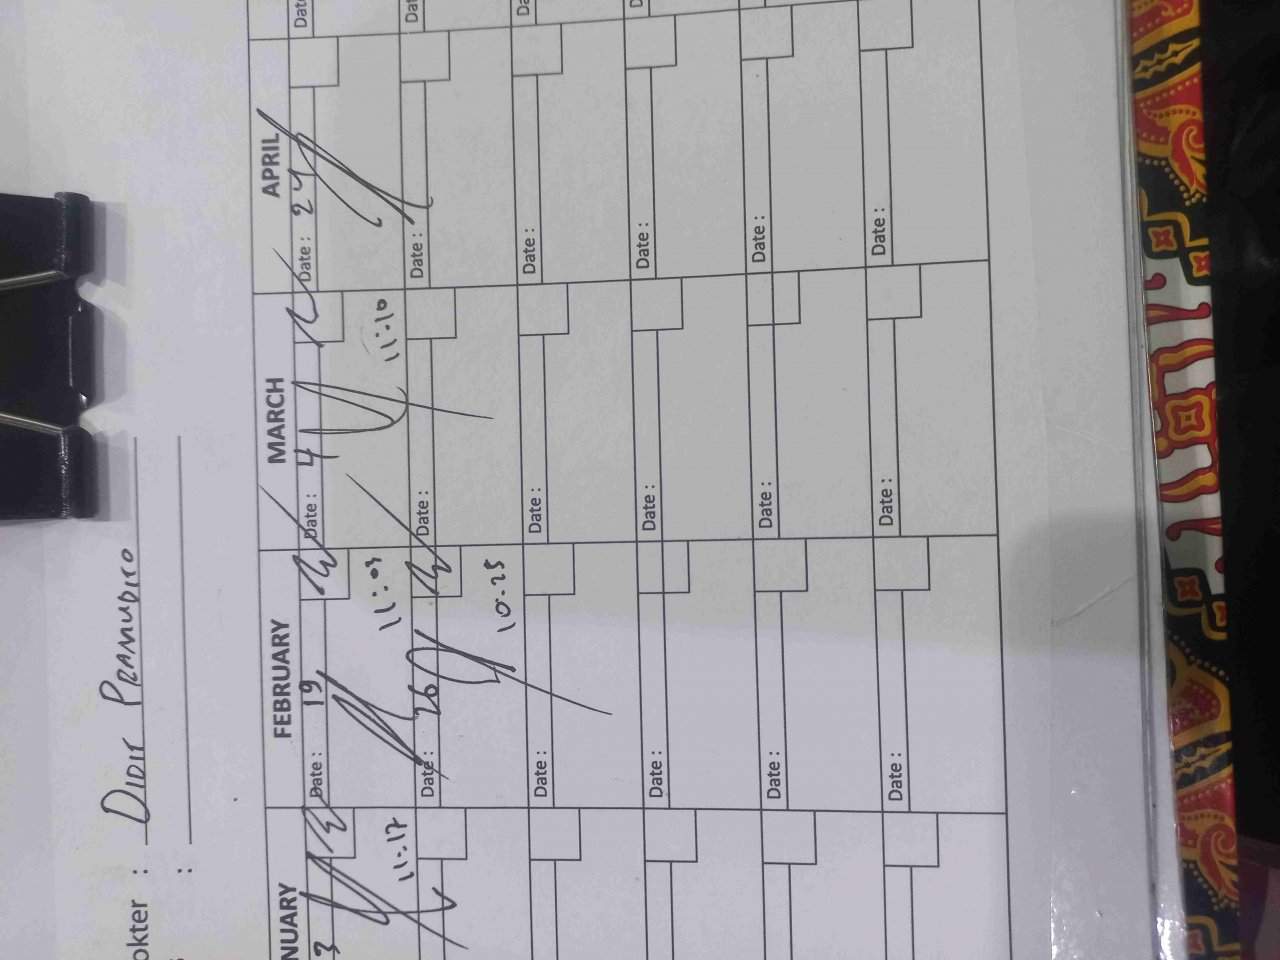 okter : DIDIT PRAMUDITO
:
NUARY FEBRUARY MARCH APRIL
3 Date : 19 Date : 4 Date : 24 Date
11:17 11:03 11:10
Date : 26 Date : Date : Dat
10.25
Date : Date : Date : Da
Date : Date : Date : D
Date : Date : Date :
Date : Date : Date :